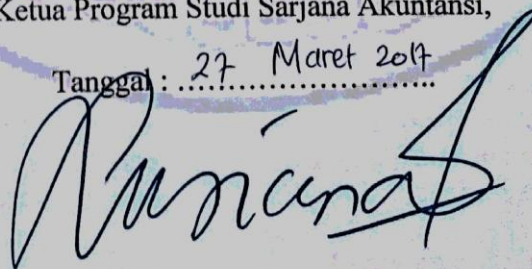 Ketua Program Studi Sarjana Akuntansi,
Tanggal : 27 Maret 2017